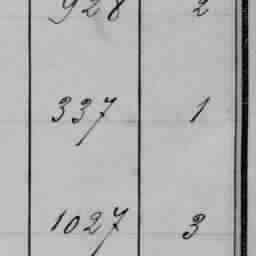 928 2
337 1
1027 3